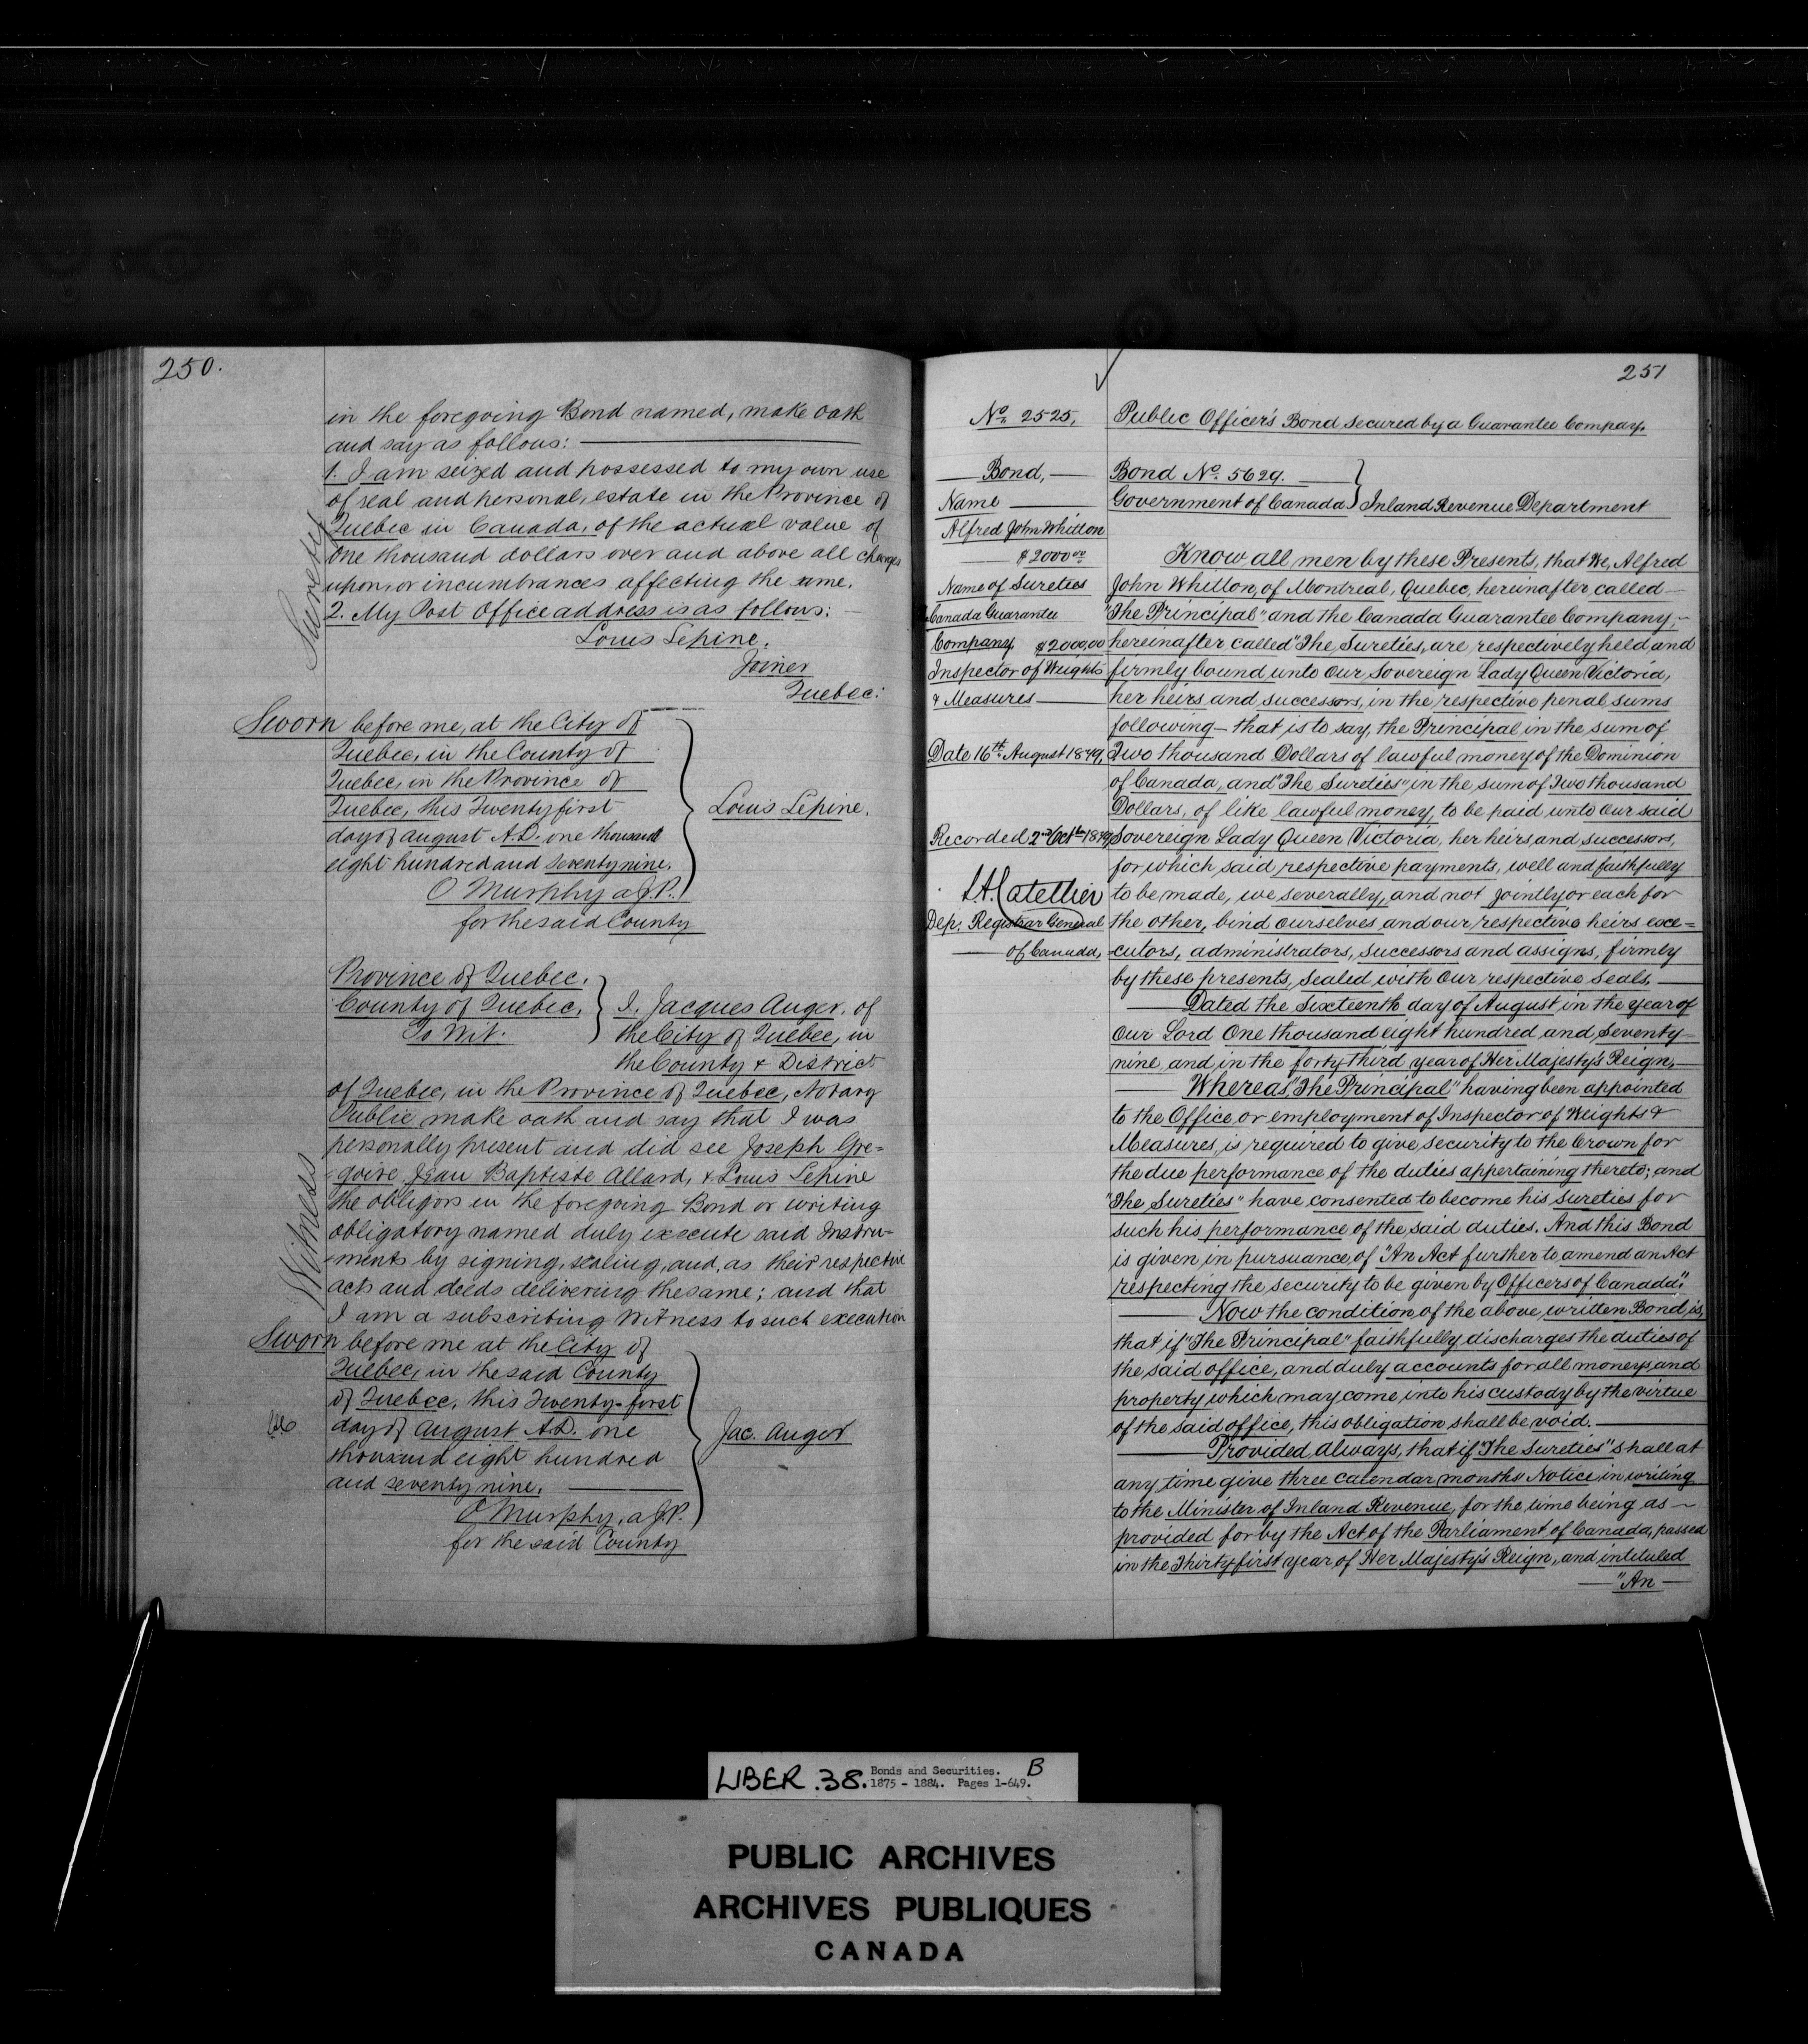 250.
in the foregoing Bond named, make oath
and say as follows:
1. I am seized and possessed to my own use
of real and personal, estate in the Province of
Quebec in Canada, of the actual value of
One thousand dollars over and above all charges
upon, or incumbrances affecting the same.
2. My Post Office address is as follows:
Louis Lepine.
Joiner
Quebec.
Surety
Sworn before me, at the City of
Quebec, in the County of
Quebec, in the Province of
Quebec, this Twenty first
day of August A.D. one thousand
eight hundred and seventy nine.
Louis Lepine.
O Murphy a J.P.
for the said County
Province of Quebec.
County of Quebec.
To Wit.
I. Jacques Auger. of
the City of Quebec, in
the County & District
of Quebec, in the Province of Quebec, Notary
Public make oath and say that I was
personally present and did see Joseph Gre=
=goire Jean Baptiste Allard, & Louis Lepine
the obligors in the foregoing Bond or writing
obligatory named duly execute said Instru-
-ments by signing, sealing, and, as their respective
acts and deeds delivering the same; and that
I am a subscribing Witness to such execution
Witness
Sworn before me at the City of
Quebec, in the said County
of Quebec, this Twenty-first
day of August A.D. one
thousand eight hundred
and seventy nine.
Jac. Auger
O Murphy, a J.P.
for the said County
251
No. 2525,
Bond,
Name
Alfred John Whitton
$2000.00
Name of Sureties
Canada Guarantee
Company $2000,00
Inspector of Weights
& Measures
Date 16th August 1879,
Recorded 2nd Octbr 1879
L.A. Catellier
Dep: Registrar General
of Canada,
Public Officer's Bond secured by a Guarantee Company.
Bond No. 5629.
Government of Canada } Inland Revenue Department
Know all men by these Presents, that We, Alfred
John Whitton, of Montreal, Quebec, hereinafter called
"The Principal" and the Canada Guarantee Company,
hereinafter called "The Sureties, are respectively held and
firmly bound unto Our Sovereign Lady Queen Victoria,
her heirs and successors, in the respective penal sums
following - that is to say, the Principal in the sum of
Two thousand Dollars of lawful money of the Dominion
of Canada, and "The Sureties" in the sum of Two thousand
Dollars, of like lawful money, to be paid unto Our said
Sovereign Lady Queen Victoria, her heirs and successors,
for which said respective payments, well and faithfully
to be made, we severally, and not jointly or each for
the other, bind ourselves and our respective heirs exe=
=cutors, administrators, successors and assigns, firmly
by these presents, Sealed with Our respective Seals,
Dated the Sixteenth day of August in the year of
Our Lord One thousand eight hundred and Seventy
nine and in the forty third year of Her Majesty's Reign,
Whereas "The Principal" having been appointed
to the Office or employment of Inspector of Weights &
Measures, is required to give security to the Crown for
the due performance of the duties appertaining thereto; and
"The Sureties" have consented to become his Sureties for
such his performance of the said duties. And this Bond
is given in pursuance, of "An Act further to amend an Act
respecting the security to be given by Officers of Canada".
Now the condition, of the above, written Bond, is,
that if "The Principal" faithfully discharges the duties of
the said office, and duly accounts for all moneys, and
property which may come into his custody by the virtue
of the said office, this obligation shall be void.
Provided always, that if "The Sureties" shall at
any time give three calendar months Notice in writing
to the Minister of Inland Revenue, for the time being as
provided for by the Act of the Parliament of Canada, passed
in the Thirty first year of Her Majesty's Reign, and intituled
"An
LIBER. 38. Bonds and Securities. B
1875 - 1884. Pages 1-649.
PUBLIC ARCHIVES
ARCHIVES PUBLIQUES
CANADA